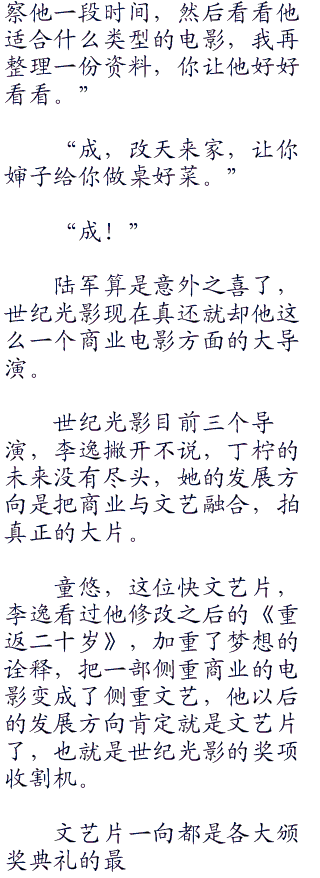 察他一段时间，然后看看他
适合什么类型的电影，我再
整理一份资料，你让他好好
看看。”
“成，改天来家，让你
婶子给你做桌好菜。”
“成！”
陆军算是意外之喜了，
世纪光影现在真还就却他这
么一个商业电影方面的大导
演。
世纪光影目前三个导
演，李逸撇开不说，丁柠的
未来没有尽头，她的发展方
向是把商业与文艺融合，拍
真正的大片。
童悠，这位快文艺片，
李逸看过他修改之后的《重
返二十岁》，加重了梦想的
诠释，把一部侧重商业的电
影变成了侧重文艺，他以后
的发展方向肯定就是文艺片
了，也就是世纪光影的奖项
收割机。
文艺片一向都是各大颁
奖典礼的最